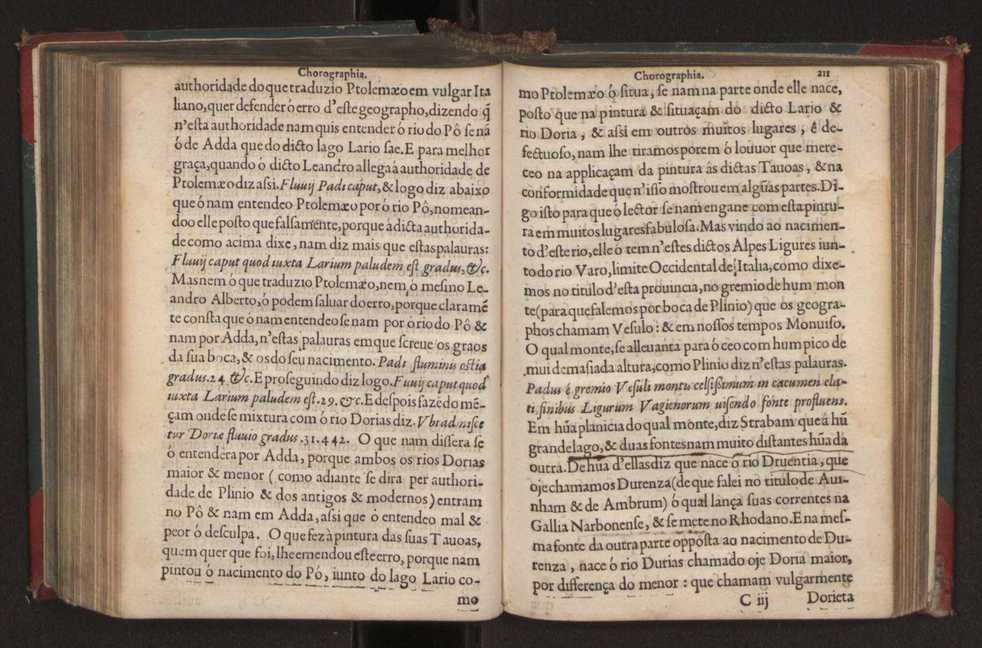 Chorographia.
authoridade do que traduzio Ptolemæo em vulgar Ita
liano, quer defender ó erro d'este geographo, dizendo q̃
n'esta authoridade nam quis entender ó rio do Pô se nã
ó de Adda que do dicto lago Lario sae. E para melhor
graça, quando ó dicto Leandro allega à authoridade de
Ptolemæo diz assi. Fluuij Padi caput, & logo diz abaixo
que ó nam entendeo Ptolemæo por ó rio Pô, nomean-
doo elle posto que falsamẽte, porque à dicta authorida-
de como acima dixe, nam diz mais que estas palauras:
Fluuij caput quod iuxta Larium paludem est gradus, &c.
Mas nem ó que traduzio Ptolemæo, nem ó mesmo Le-
andro Alberto, ó podem saluar do erro, porque claramẽ
te consta que ó nam entendeo se nam por ó rio do Pô &
nam por Adda, n'estas palauras em que screue os graos
da sua boca, & os do seu nacimento. Padi fluminis ostia
gradus. 24 &c. E proseguindo diz logo. Fuuij caput quod
iuxta Larium paludem est. 29. &c. E despois fazẽdo mẽ-
çam onde se mixtura com ó rio Dorias diz. Vbi ad nisce
tur Doriæ fluuio gradus. 31. 442. O que nam dissera se
ó entendera por Adda, porque ambos os rios Dorias
maior & menor ( como adiante se dira per authori-
dade de Plinio & dos antigos & modernos) entram
no Pô & nam em Adda, assi que ó entendeo mal &
peor ó desculpa. O que fez à pintura das suas Tauoas,
quem quer que foi, lhe emendou este erro, porque nam
pintou ó nacimento do Pó, iunto do lago Lario co-
mo
Chorographia. 211
mo Ptolemæo ó situa, se nam na parte onde elle nace,
posto que na pintura & situaçam do dicto Lario &
rio Doria, & assi em outros muitos lugares, é de-
fectuoso, nam lhe tiramos porem ó louuor que mere-
ceo na applicaçam da pintura âs dictas Tauoas, & na
conformidade que n'isso mostrou em algũas partes. Di-
go isto para que ó lector se nam engane com esta pintu-
ra em muitos lugares fabulosa. Mas vindo ao nacimen-
to d'este rio, elle ó tem n'estes dictos Alpes Ligures iun-
to do rio Varo, limite Occidental de Italia, como dixe-
mos no titulo d'esta prouincia, no gremio de hum mon
te (para que falemos por boca de Plinio) que os geogra-
phos chamam Vesulo : & em nossos tempos Monuiso.
O qual monte, se alleuanta para ó ceo com hum pico de
mui demasiada altura, como Plinio diz n'estas palauras.
Padus é gremio Vesuli montis celsissimum in cacumen ela-
ti finibus Ligurum Vagienorum uisendo fonte profluens.
Em hũa planicia do qual monte, diz Strabam que à hũ
grande lago, & duas fontes nam muito distantes hũa da
outra. De hũa d'ellas diz que nace ó rio Druentia, que
oje chamamos Durenza (de que falei no titulo de Aui-
nham & de Ambrum) ó qual lança suas correntes na
Gallia Narbonense, & se mete no Rhodano. E na mes-
ma fonte da outra parte opposta ao nacimento de Du-
renza, nace ó rio Durias chamado oje Doria maior,
por differença do menor : que chamam vulgarmente
C iij Dorieta